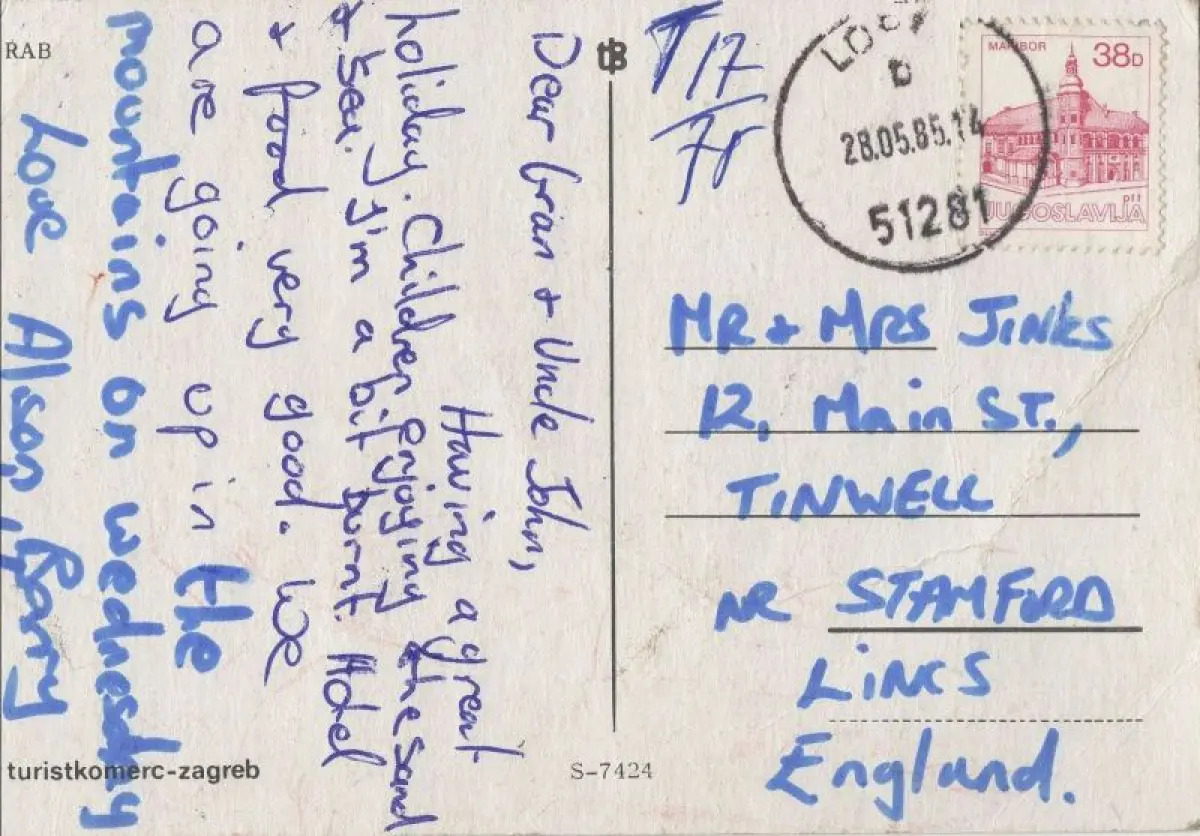 RAB
Dear Gran + Uncle John,
Having a great
holiday. Children enjoying the sand
+ Sea. I'm a bit burnt. Hotel
+ food very good. We
are going up in the
mountains on wednesday
Love Alison, Barry
turistkomerc-zagreb
S-7424
T/17
b
28.05.85.14
51281
MARIBOR
38D
PTT
JUGOSLAVIJA
MR + MRS JINKS
12, Main ST.,
TINWELL
NR STAMFORD
LINCS
England.